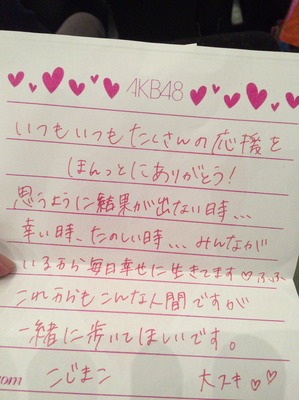 AKB48
いつもいつもたくさんの応援を
ほんっとにありがとう!
思うように結果が出ない時、、、
幸い時、たのしい時、、、みんなが
いるから毎日幸せに生きてます♡ふふ
これからもこんな人間ですが
一緒に歩いてほしいです。
こじまこ 大スキ♡♡
com